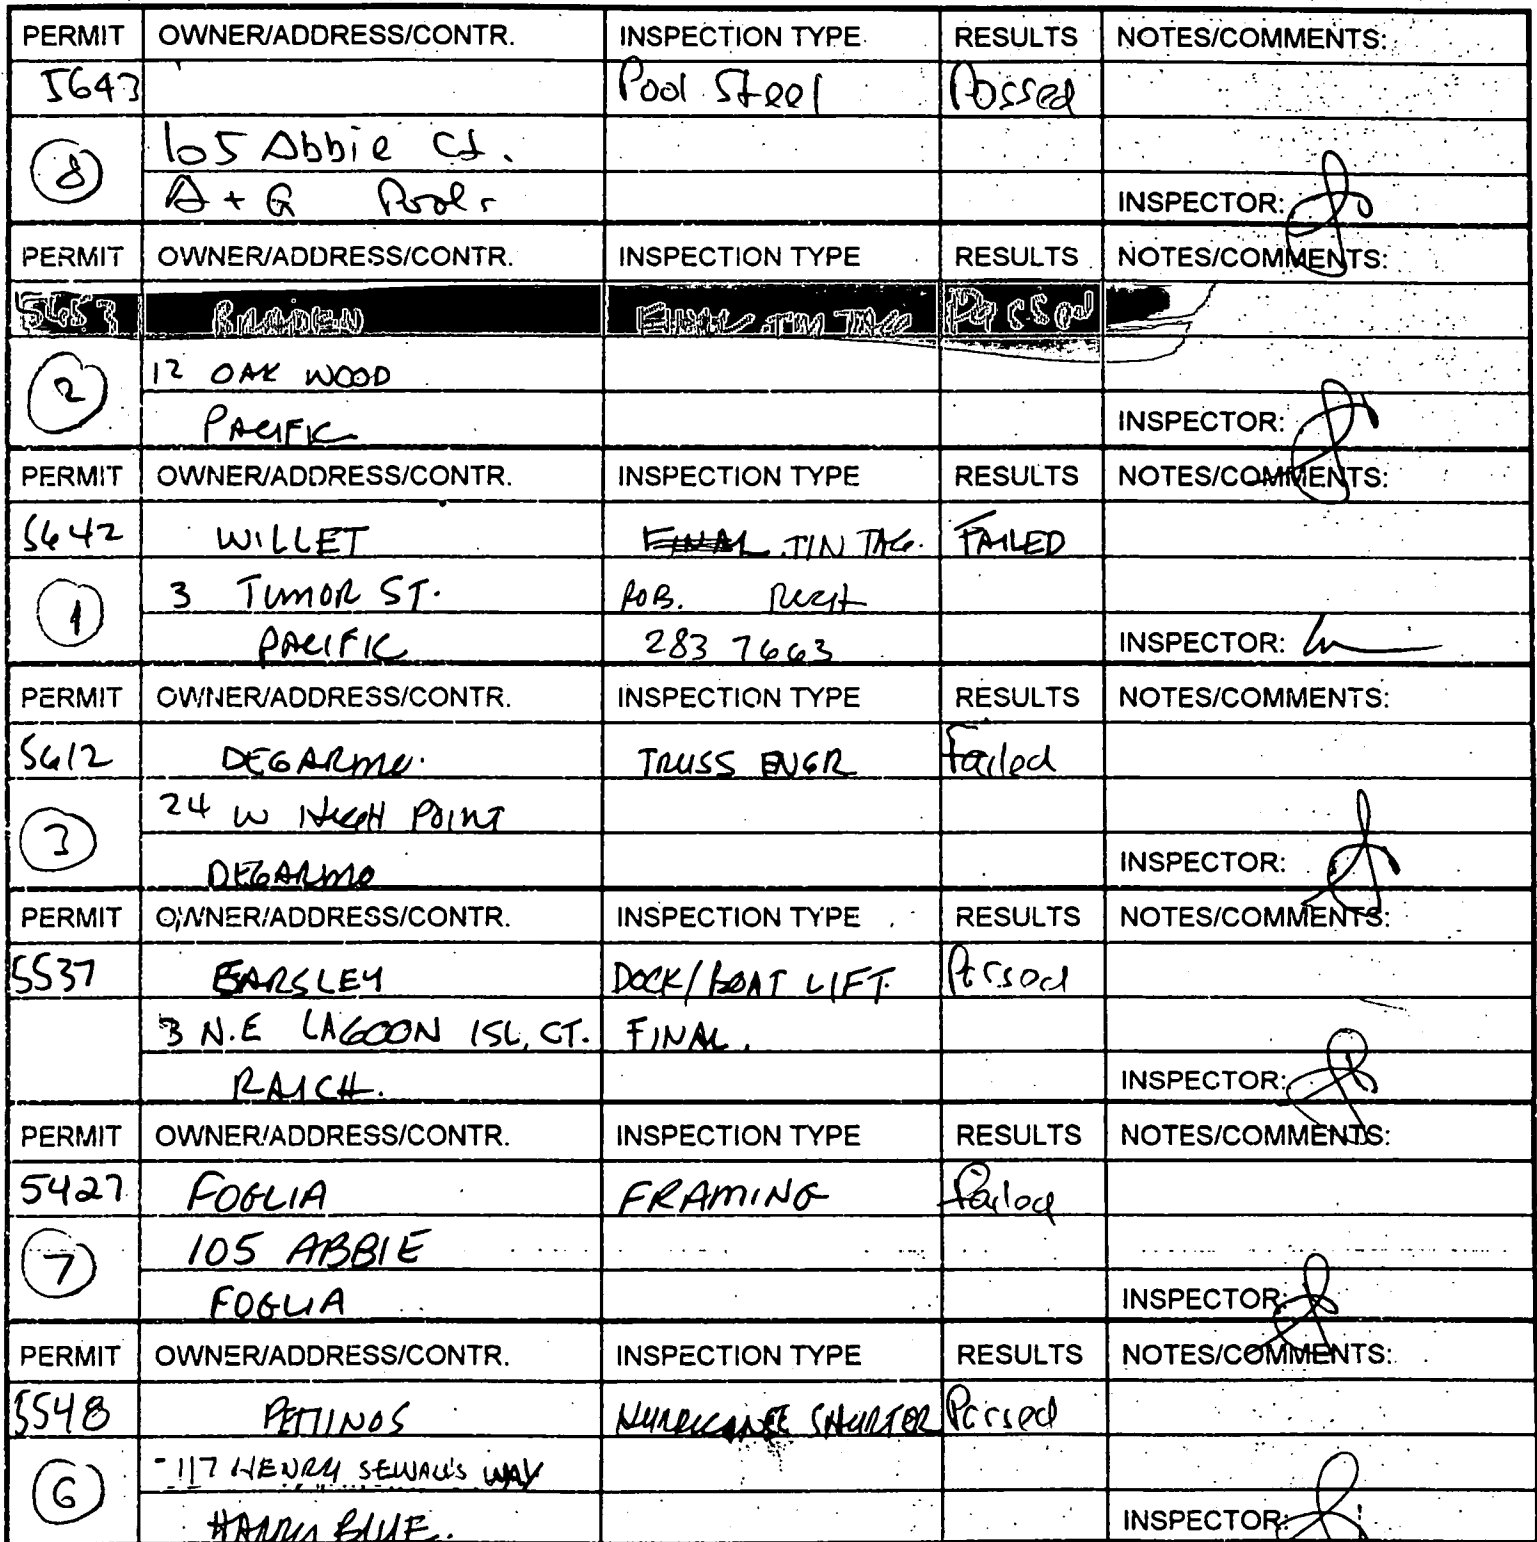 PERMIT OWNER/ADDRESS/CONTR. INSPECTION TYPE RESULTS NOTES/COMMENTS:
5643 Pool Steel Passed
8 105 Abbie Ct.
A + G Pools INSPECTOR:
PERMIT OWNER/ADDRESS/CONTR. INSPECTION TYPE RESULTS NOTES/COMMENTS:
5653 BRADEN FINAL TIN TAG Passed
2 12 OAKWOOD
PACIFIC INSPECTOR:
PERMIT OWNER/ADDRESS/CONTR. INSPECTION TYPE RESULTS NOTES/COMMENTS:
5642 WILLET FINAL TIN TAG. FAILED
1 3 TUMOR ST. ROB.
PACIFIC 283 7663 INSPECTOR:
PERMIT OWNER/ADDRESS/CONTR. INSPECTION TYPE RESULTS NOTES/COMMENTS:
5612 DEGARMO. TRUSS ENGR Failed
3 24 W HIGH POINT
DEGARMO INSPECTOR:
PERMIT OWNER/ADDRESS/CONTR. INSPECTION TYPE RESULTS NOTES/COMMENTS:
5537 EARSLEY DOCK/BOAT LIFT. Passed
3 N.E LAGOON ISL, CT. FINAL.
RAICH. INSPECTOR:
PERMIT OWNER/ADDRESS/CONTR. INSPECTION TYPE RESULTS NOTES/COMMENTS:
5427 FOGLIA FRAMING Failed
7 105 ABBIE
FOGLIA INSPECTOR:
PERMIT OWNER/ADDRESS/CONTR. INSPECTION TYPE RESULTS NOTES/COMMENTS:
5548 PETTINOS HURRICANE SHUTTER Passed
6 117 HENRY SEWALL'S WAY
HARRY BLUE. INSPECTOR: